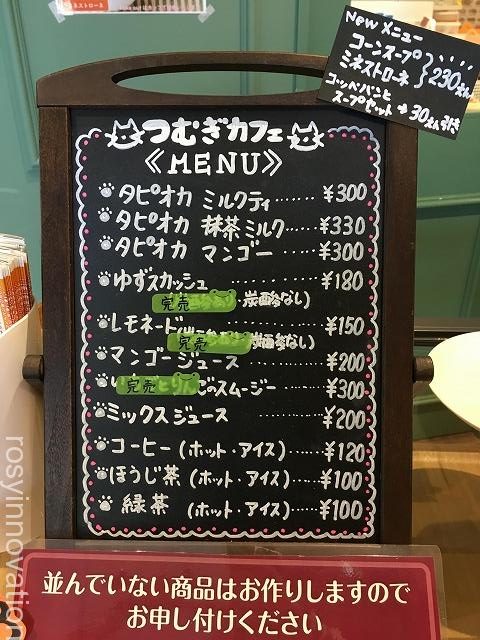 Newメニュー
コーンスープ
ミネストローネ
230えん
コッペパンと
スープセット→30えん引き
つむぎカフェ
《MENU》
タピオカ ミルクティ……¥300
タピオカ 抹茶ミルク……¥330
タピオカ マンゴー……¥300
ゆずスカッシュ……¥180
完売
炭酸なし)
レモネード……¥150
完売
炭酸なし)
マンゴージュース……¥200
完売
ごスムージー……¥300
ミックスジュース……¥200
コーヒー(ホット・アイス)……¥120
ほうじ茶(ホット・アイス)……¥100
緑茶(ホット・アイス)……¥100
並んでいない商品はお作りしますので
お申し付けください
rosyinnovation